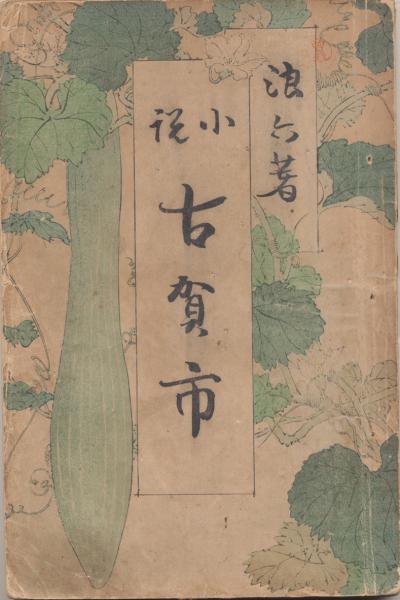 浪六著
小説
古賀市